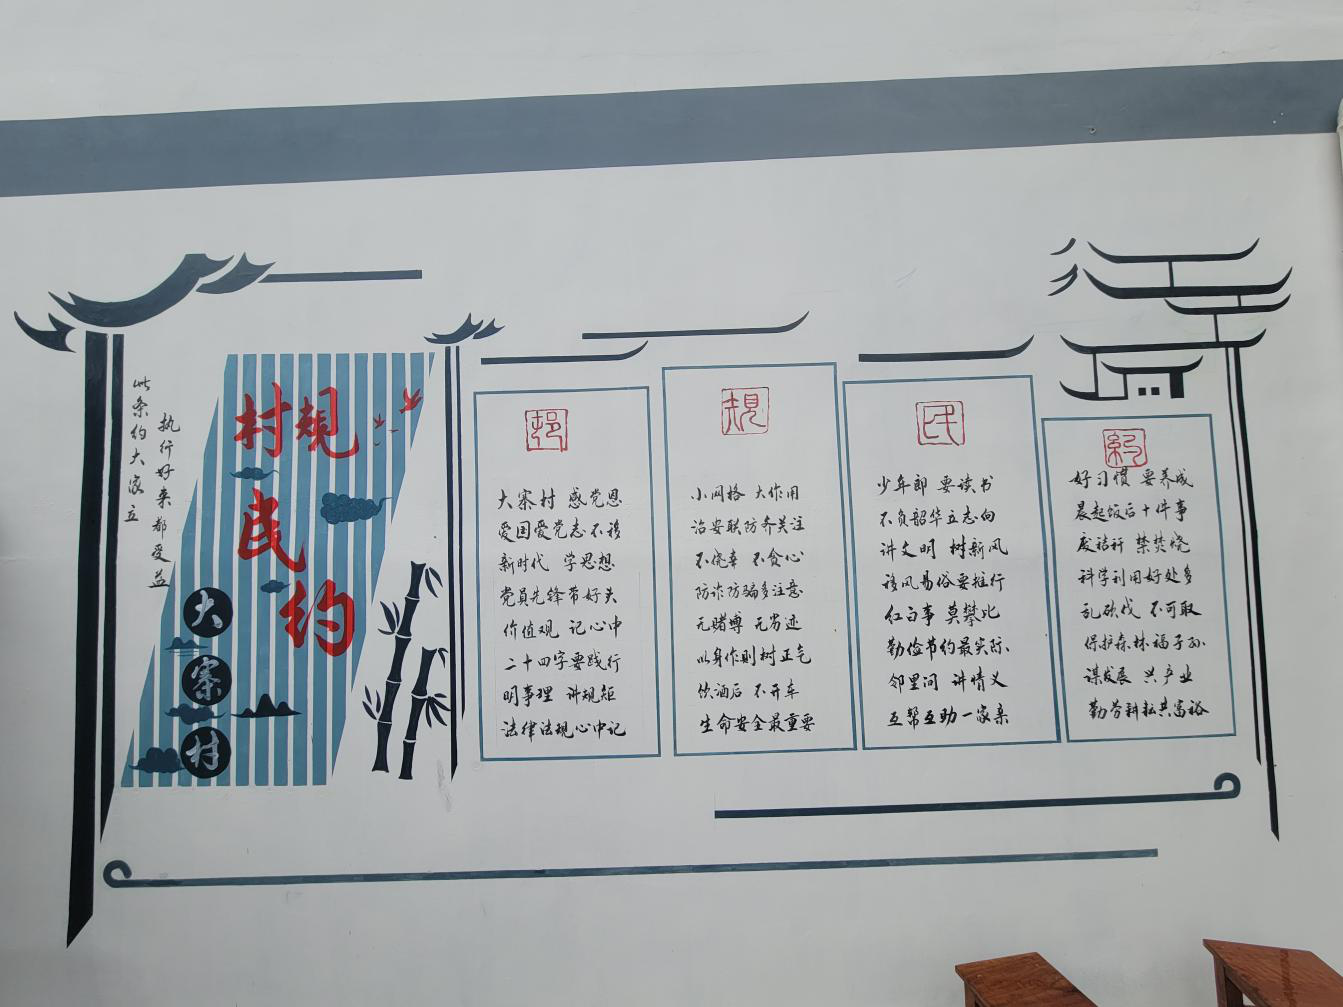 此条约大家立
执行好来都受益
村规
民约
大寨村
村
大寨村 感党恩
爱国爱党志不移
新时代 学思想
党员先锋带好头
价值观 记心中
二十四字要践行
明事理 讲规矩
法律法规心中记
規
小网格 大作用
治安联防齐关注
不侥幸 不贪心
防诈防骗多注意
无赌博 无劣迹
以身作则树正气
饮酒后 不开车
生命安全最重要
民
少年郎 要读书
不负韶华立志向
讲文明 树新风
移风易俗要推行
红白事 莫攀比
勤俭节约最实际
邻里间 讲情义
互帮互助一家亲
約
好习惯 要养成
晨起饭后十件事
废秸秆 禁焚烧
科学利用好处多
乱砍伐 不可取
保护森林福子孙
谋发展 兴产业
勤劳耕耘共富裕